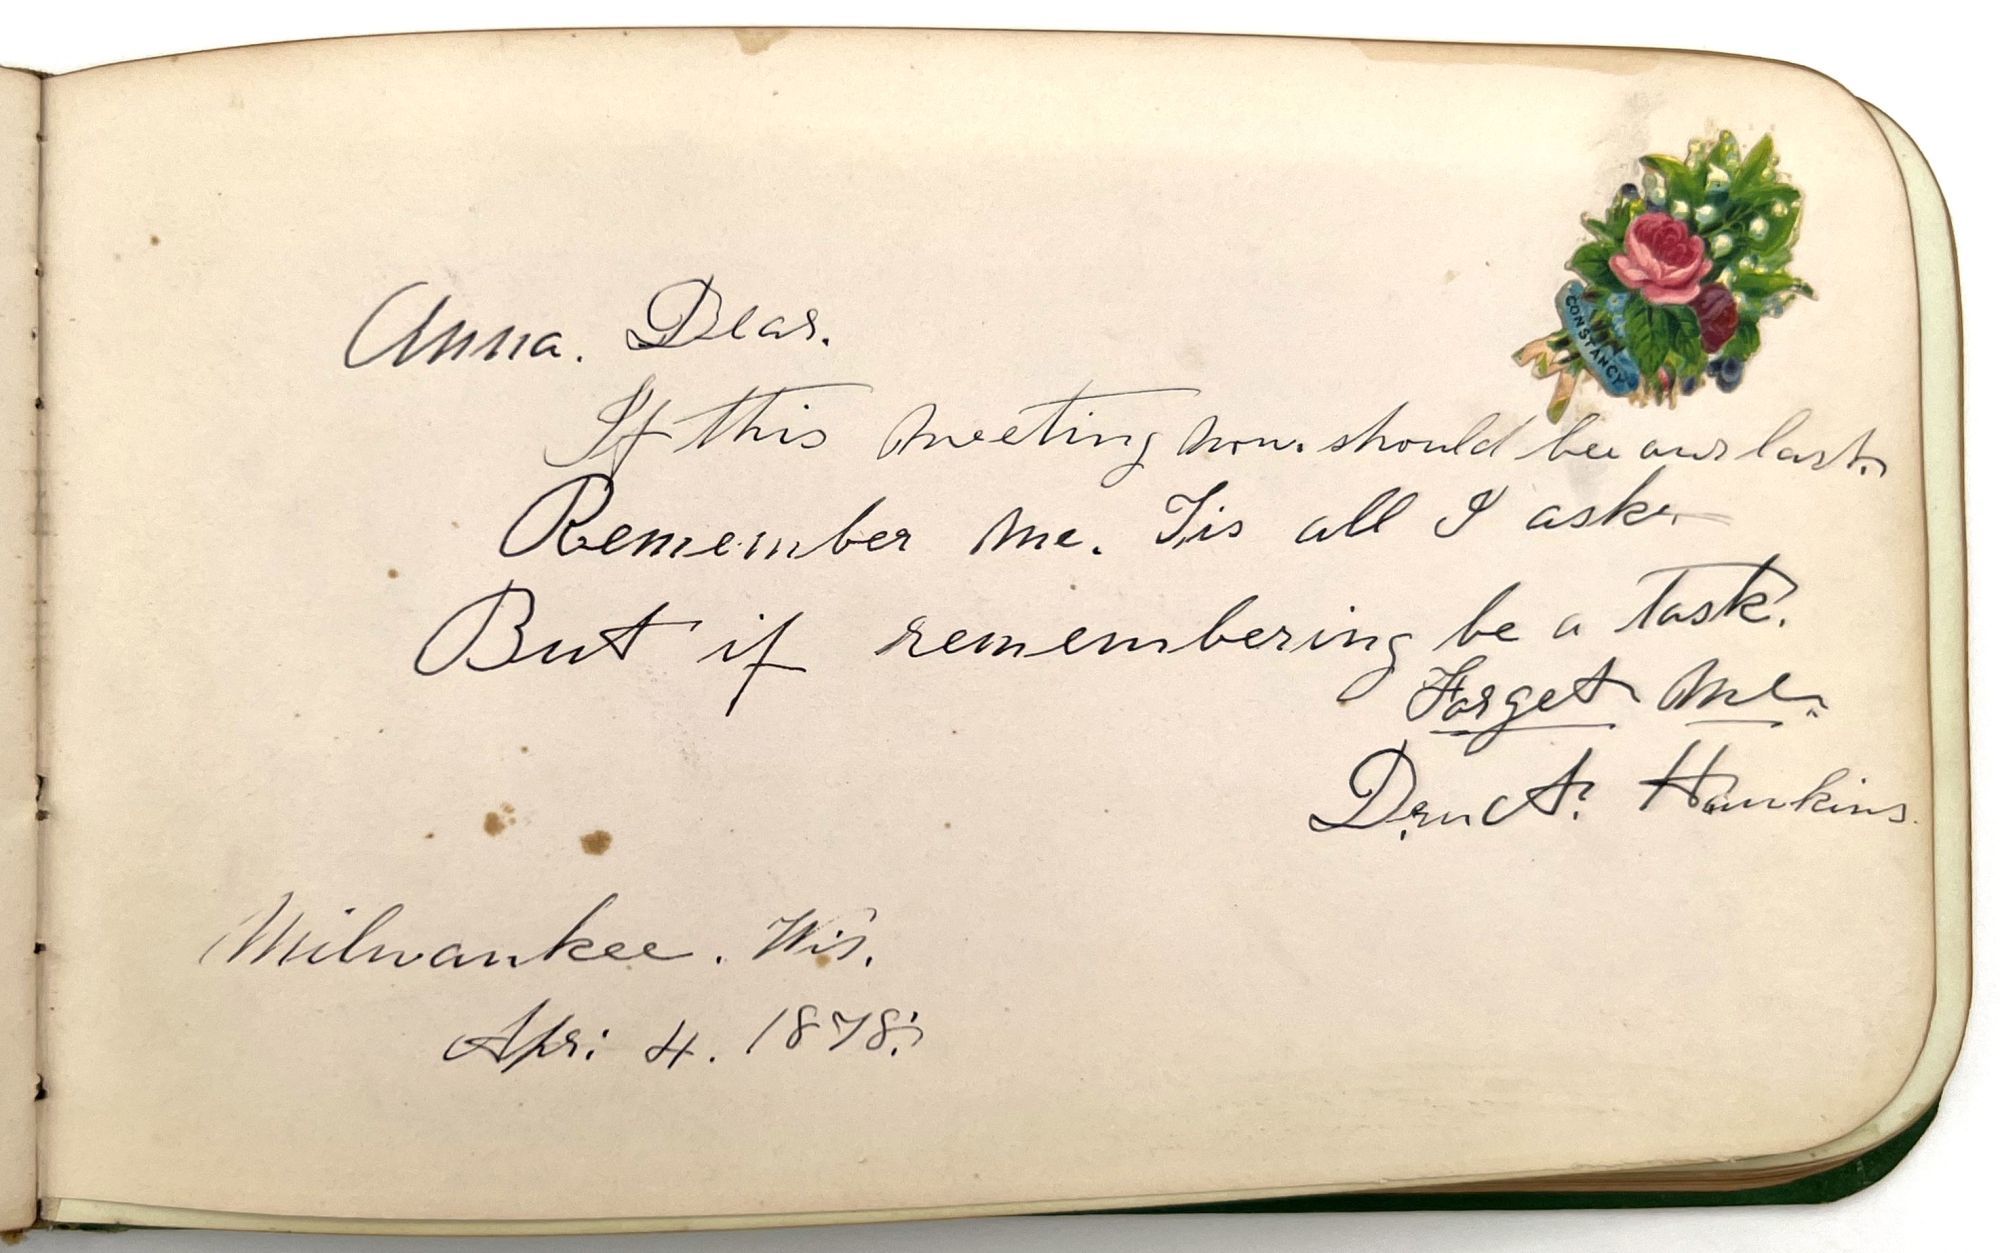 CONSTANCY
Anna. Dear.
If this meeting now. should bee our last.
Remember Me. Tis all I ask.
But if remembering be a task.
Forget Me.
A. Hawkins.
Milwaukee. Wis.
Apr: 4. 1878.